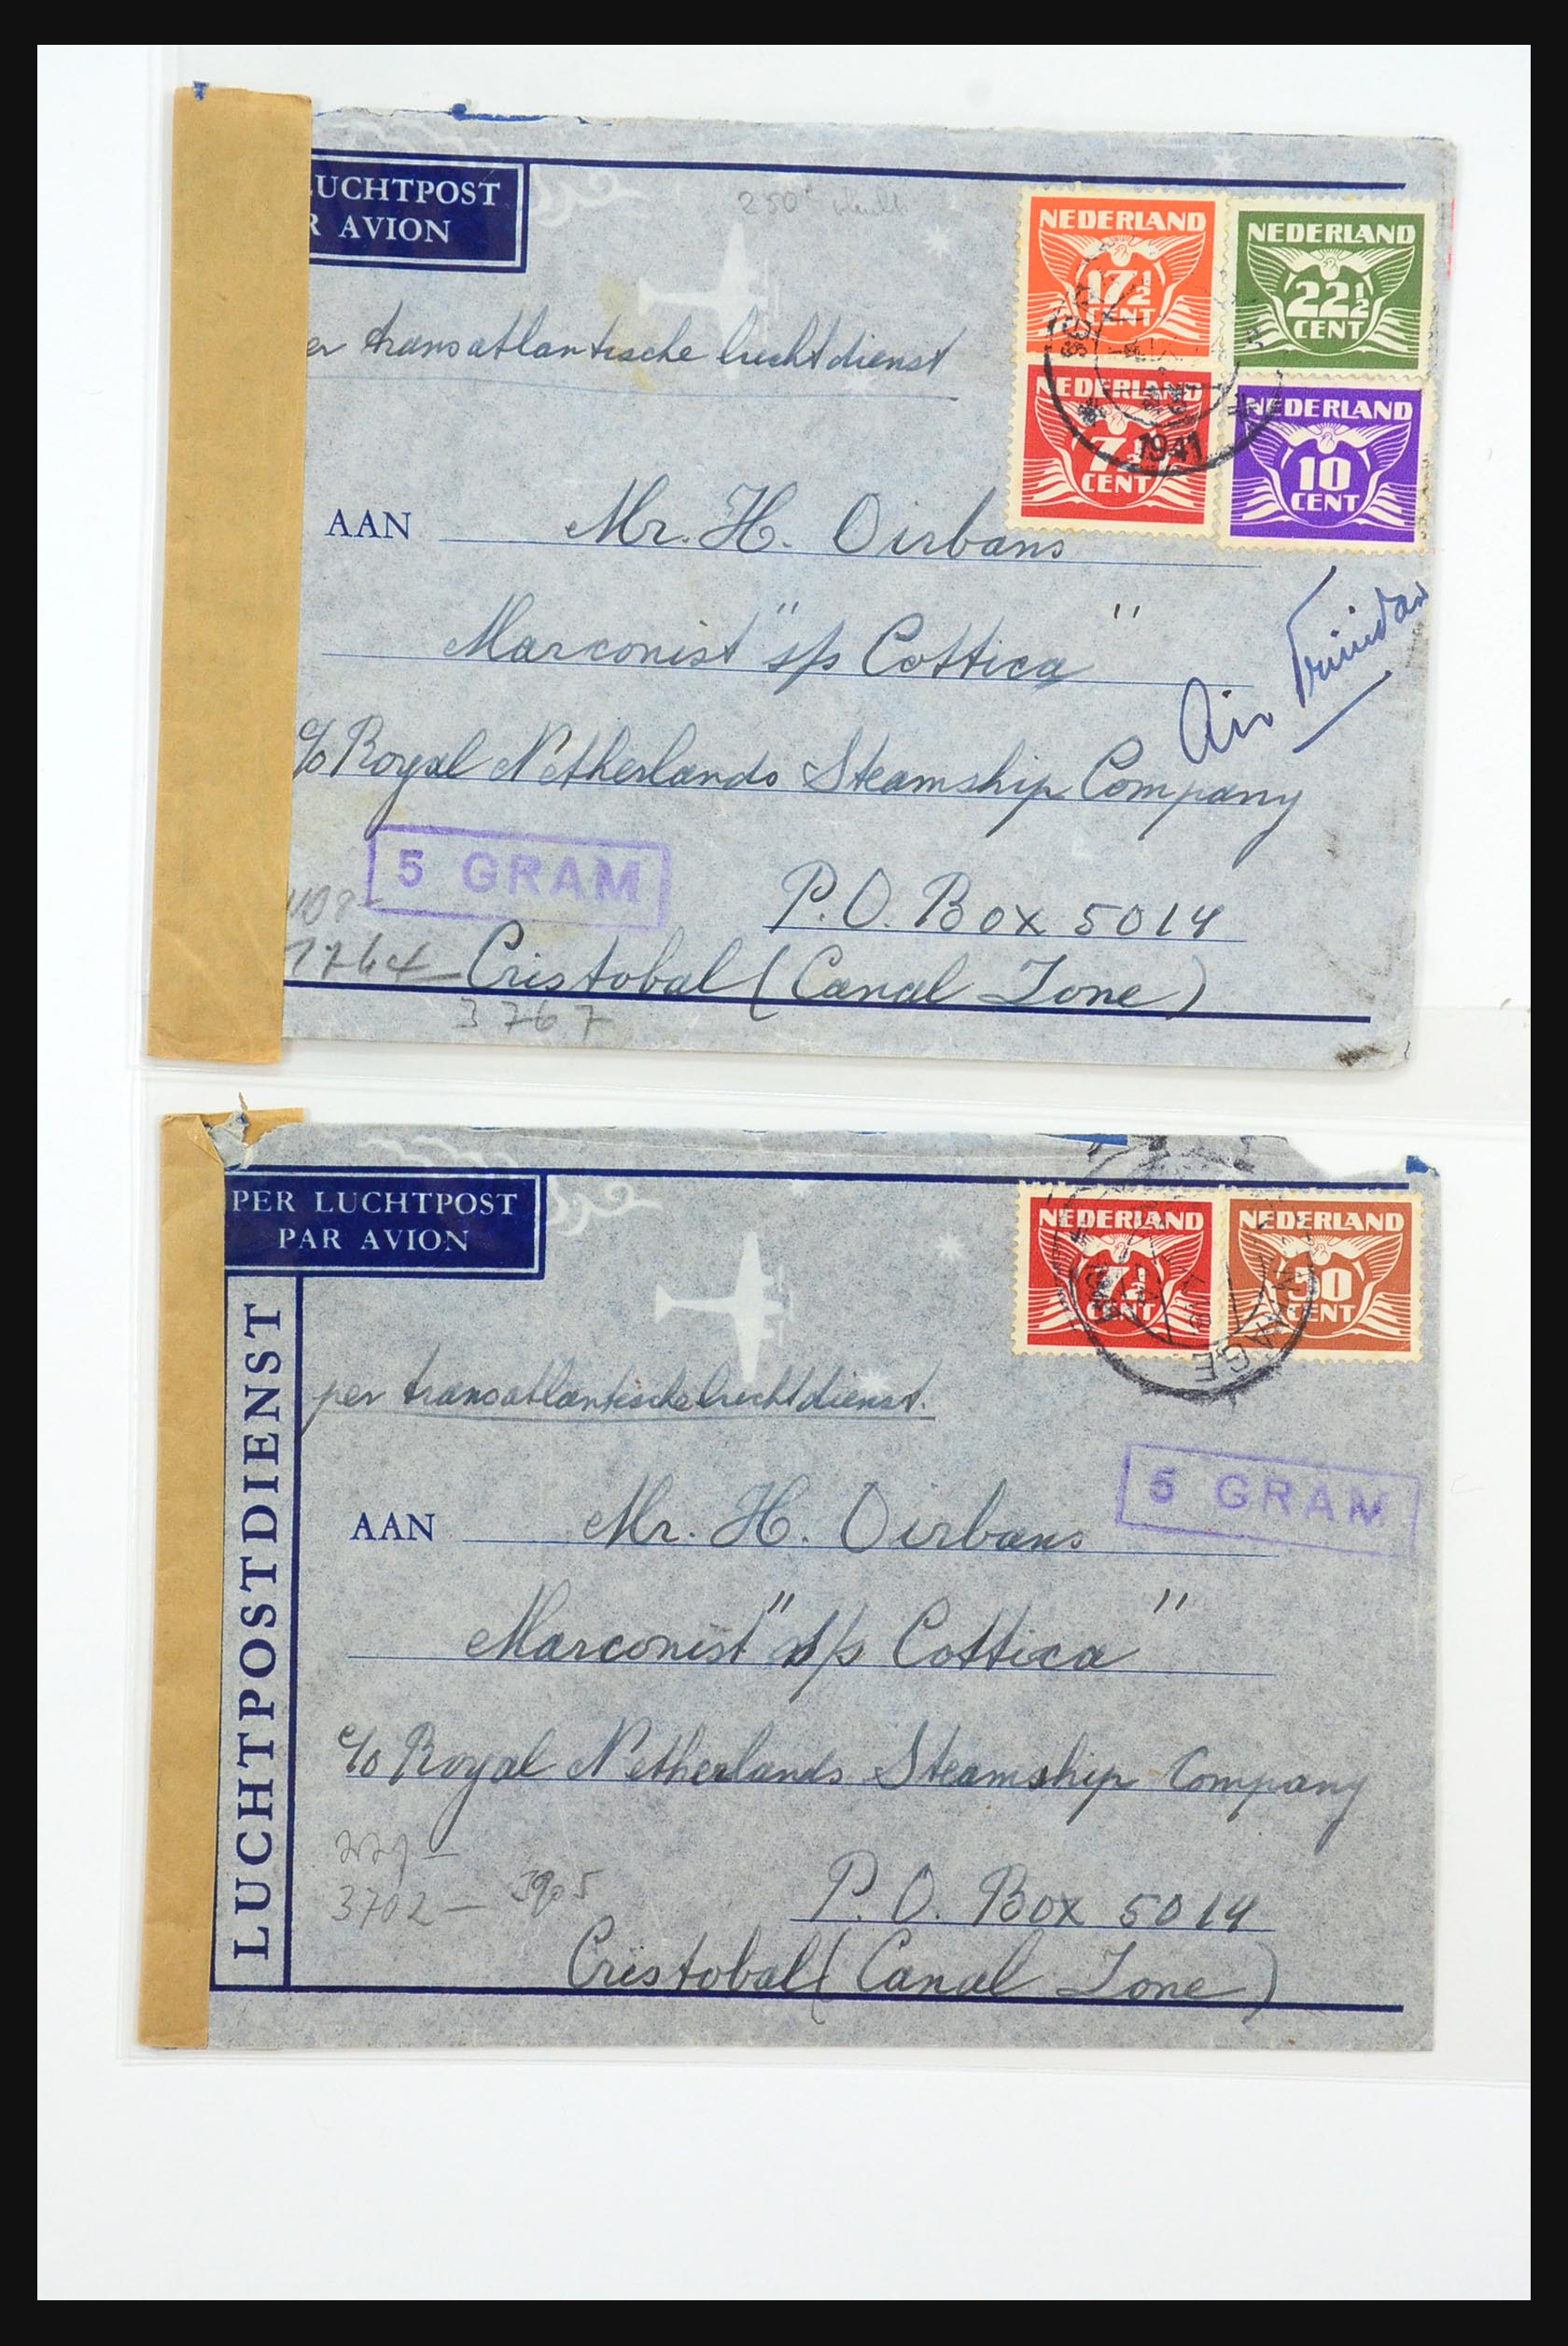 LUCHTPOST
R AVION
250
er transatlantische luchtdienst
NEDERLAND
17½
CENT
NEDERLAND
22½
CENT
NEDERLAND
7½
CENT
NEDERLAND
10
CENT
1941
AAN Mr. H. Oirbans
Marconist "s/s Cottica"
Air Trinidad
c/o Royal Netherlands Steamship Company
5 GRAM
P.O. Box 5014
1764
Cristobal (Canal Zone)
3767
PER LUCHTPOST
PAR AVION
LUCHTPOSTDIENST
NEDERLAND
7½
CENT
NEDERLAND
30
CENT
per transatlantische luchtdienst.
5 GRAM
AAN Mr. H. Oirbans
Marconist "s/s Cottica"
c/o Royal Netherlands Steamship Company
3702 — 3905
P.O. Box 5014
Cristobal (Canal Zone)